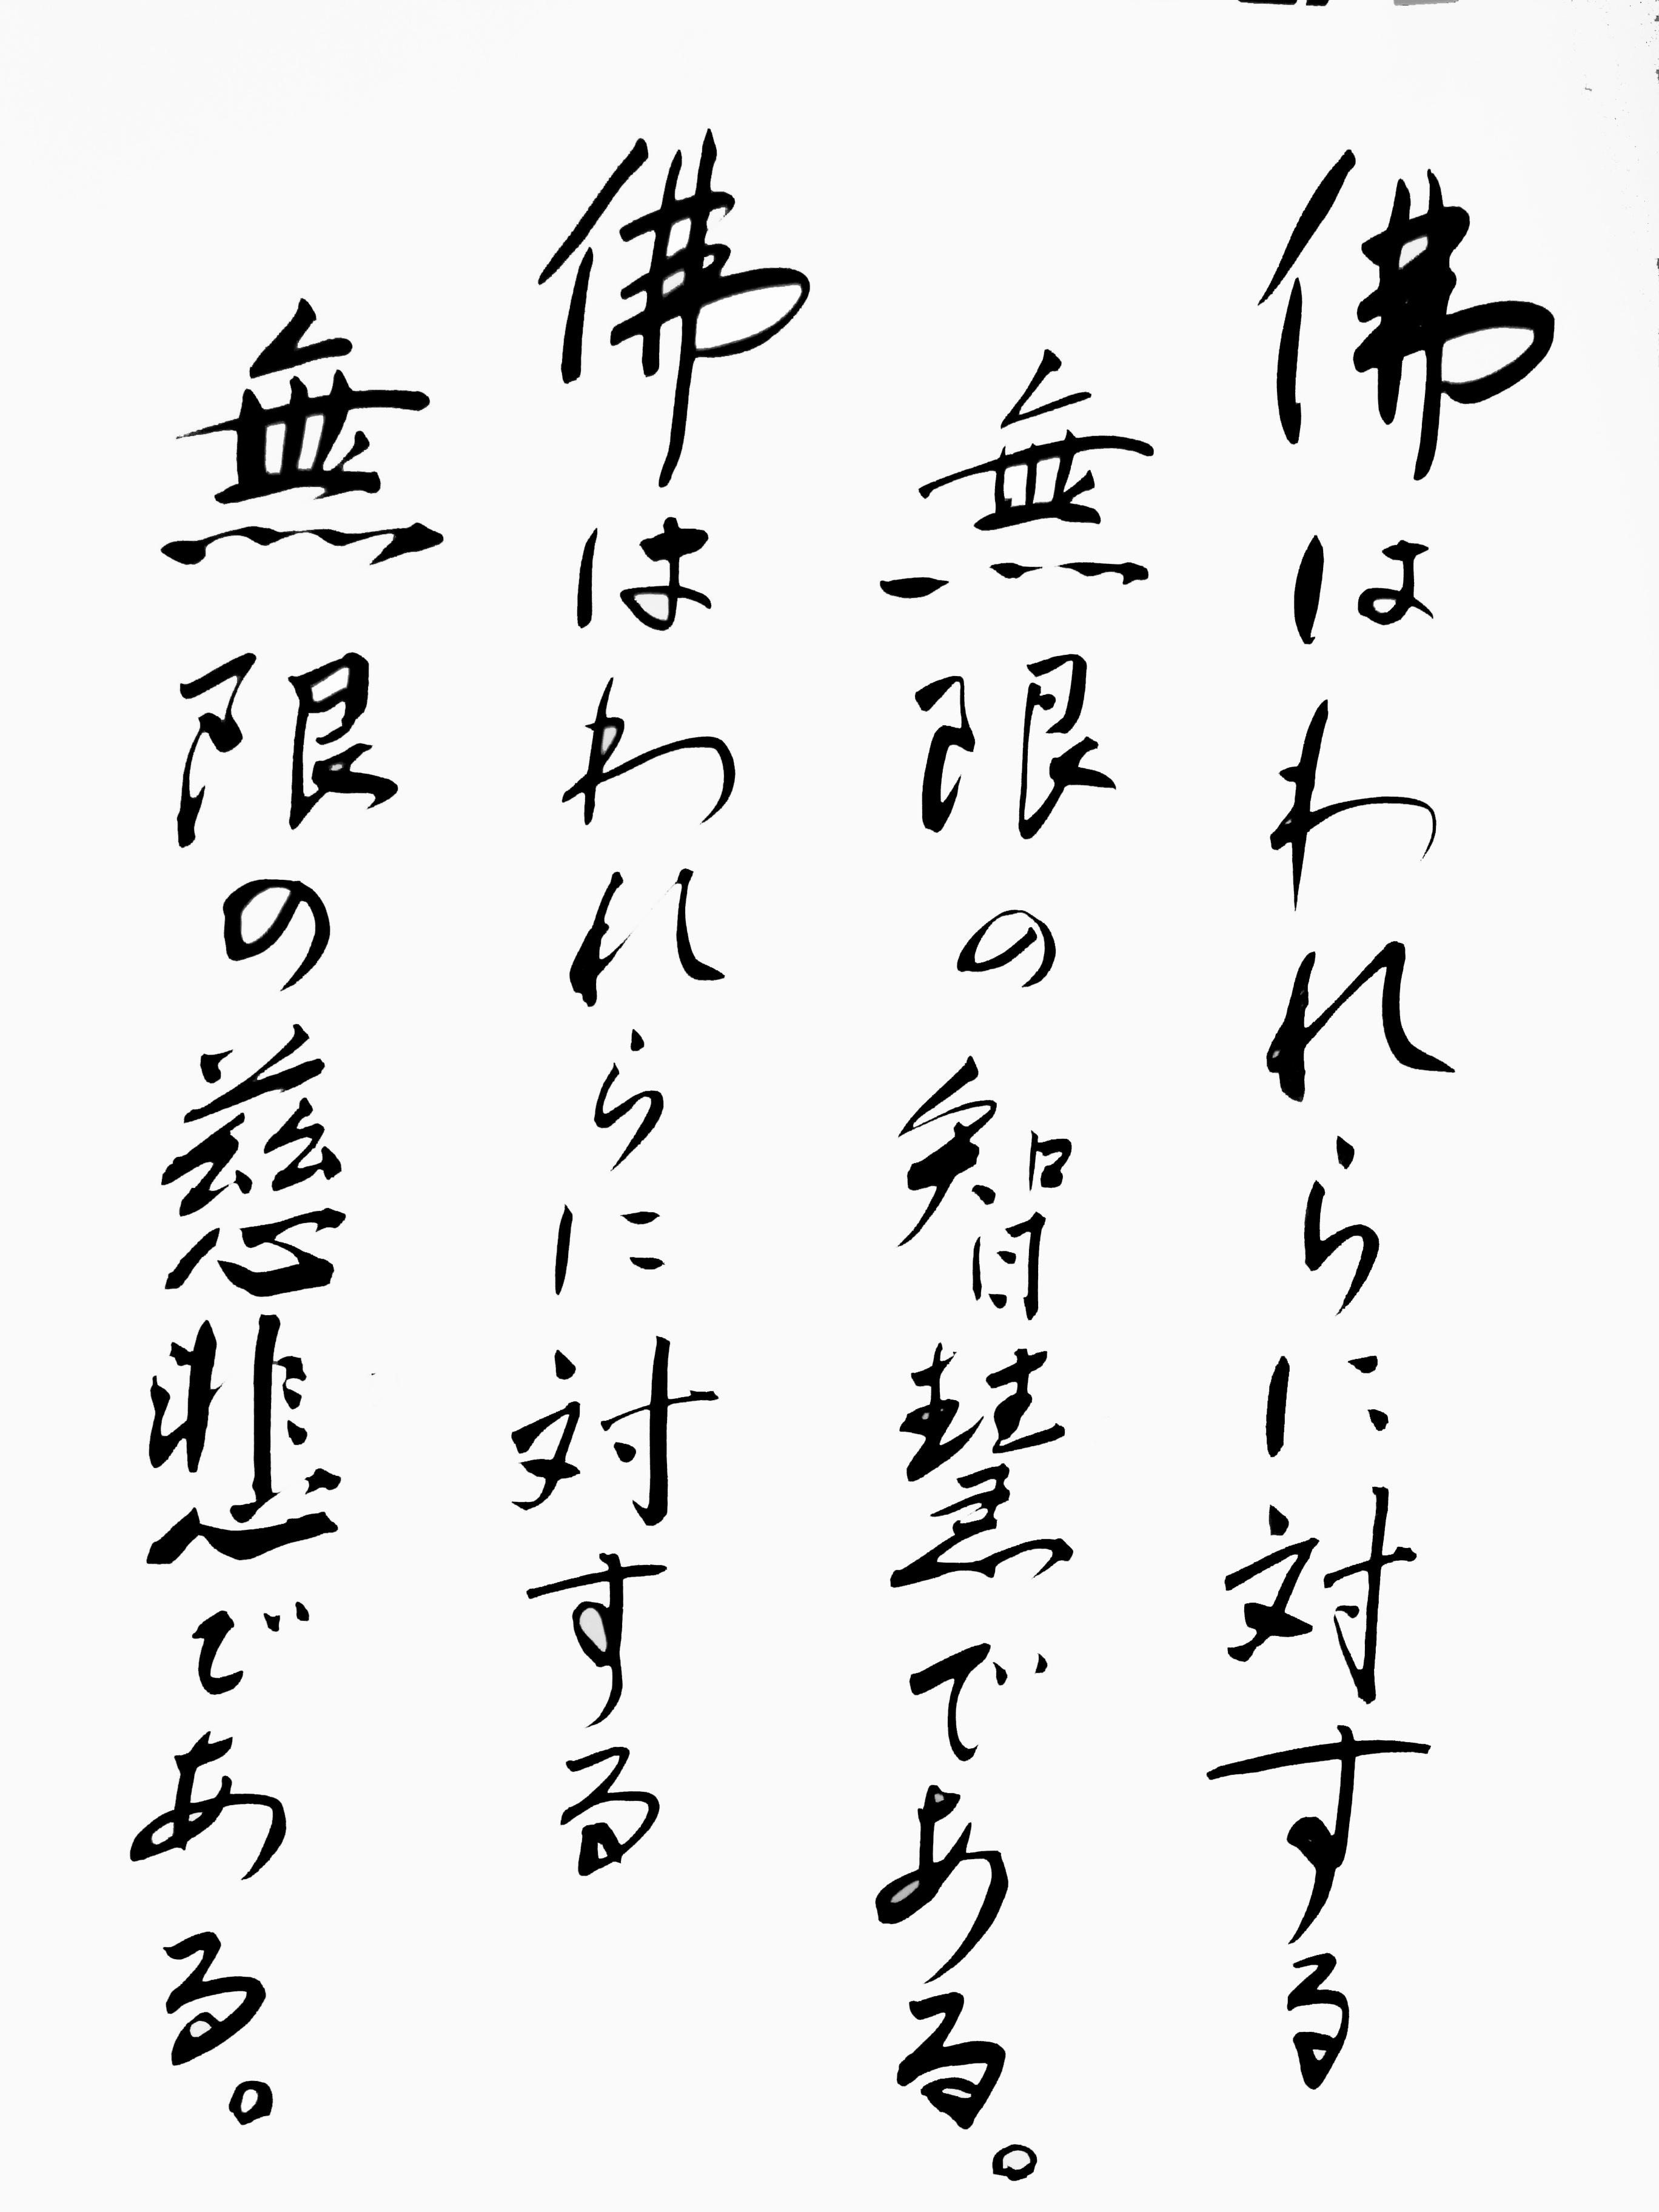 佛はわれらに対する
無限の智慧である。
佛はわれらに対する
無限の慈悲である。